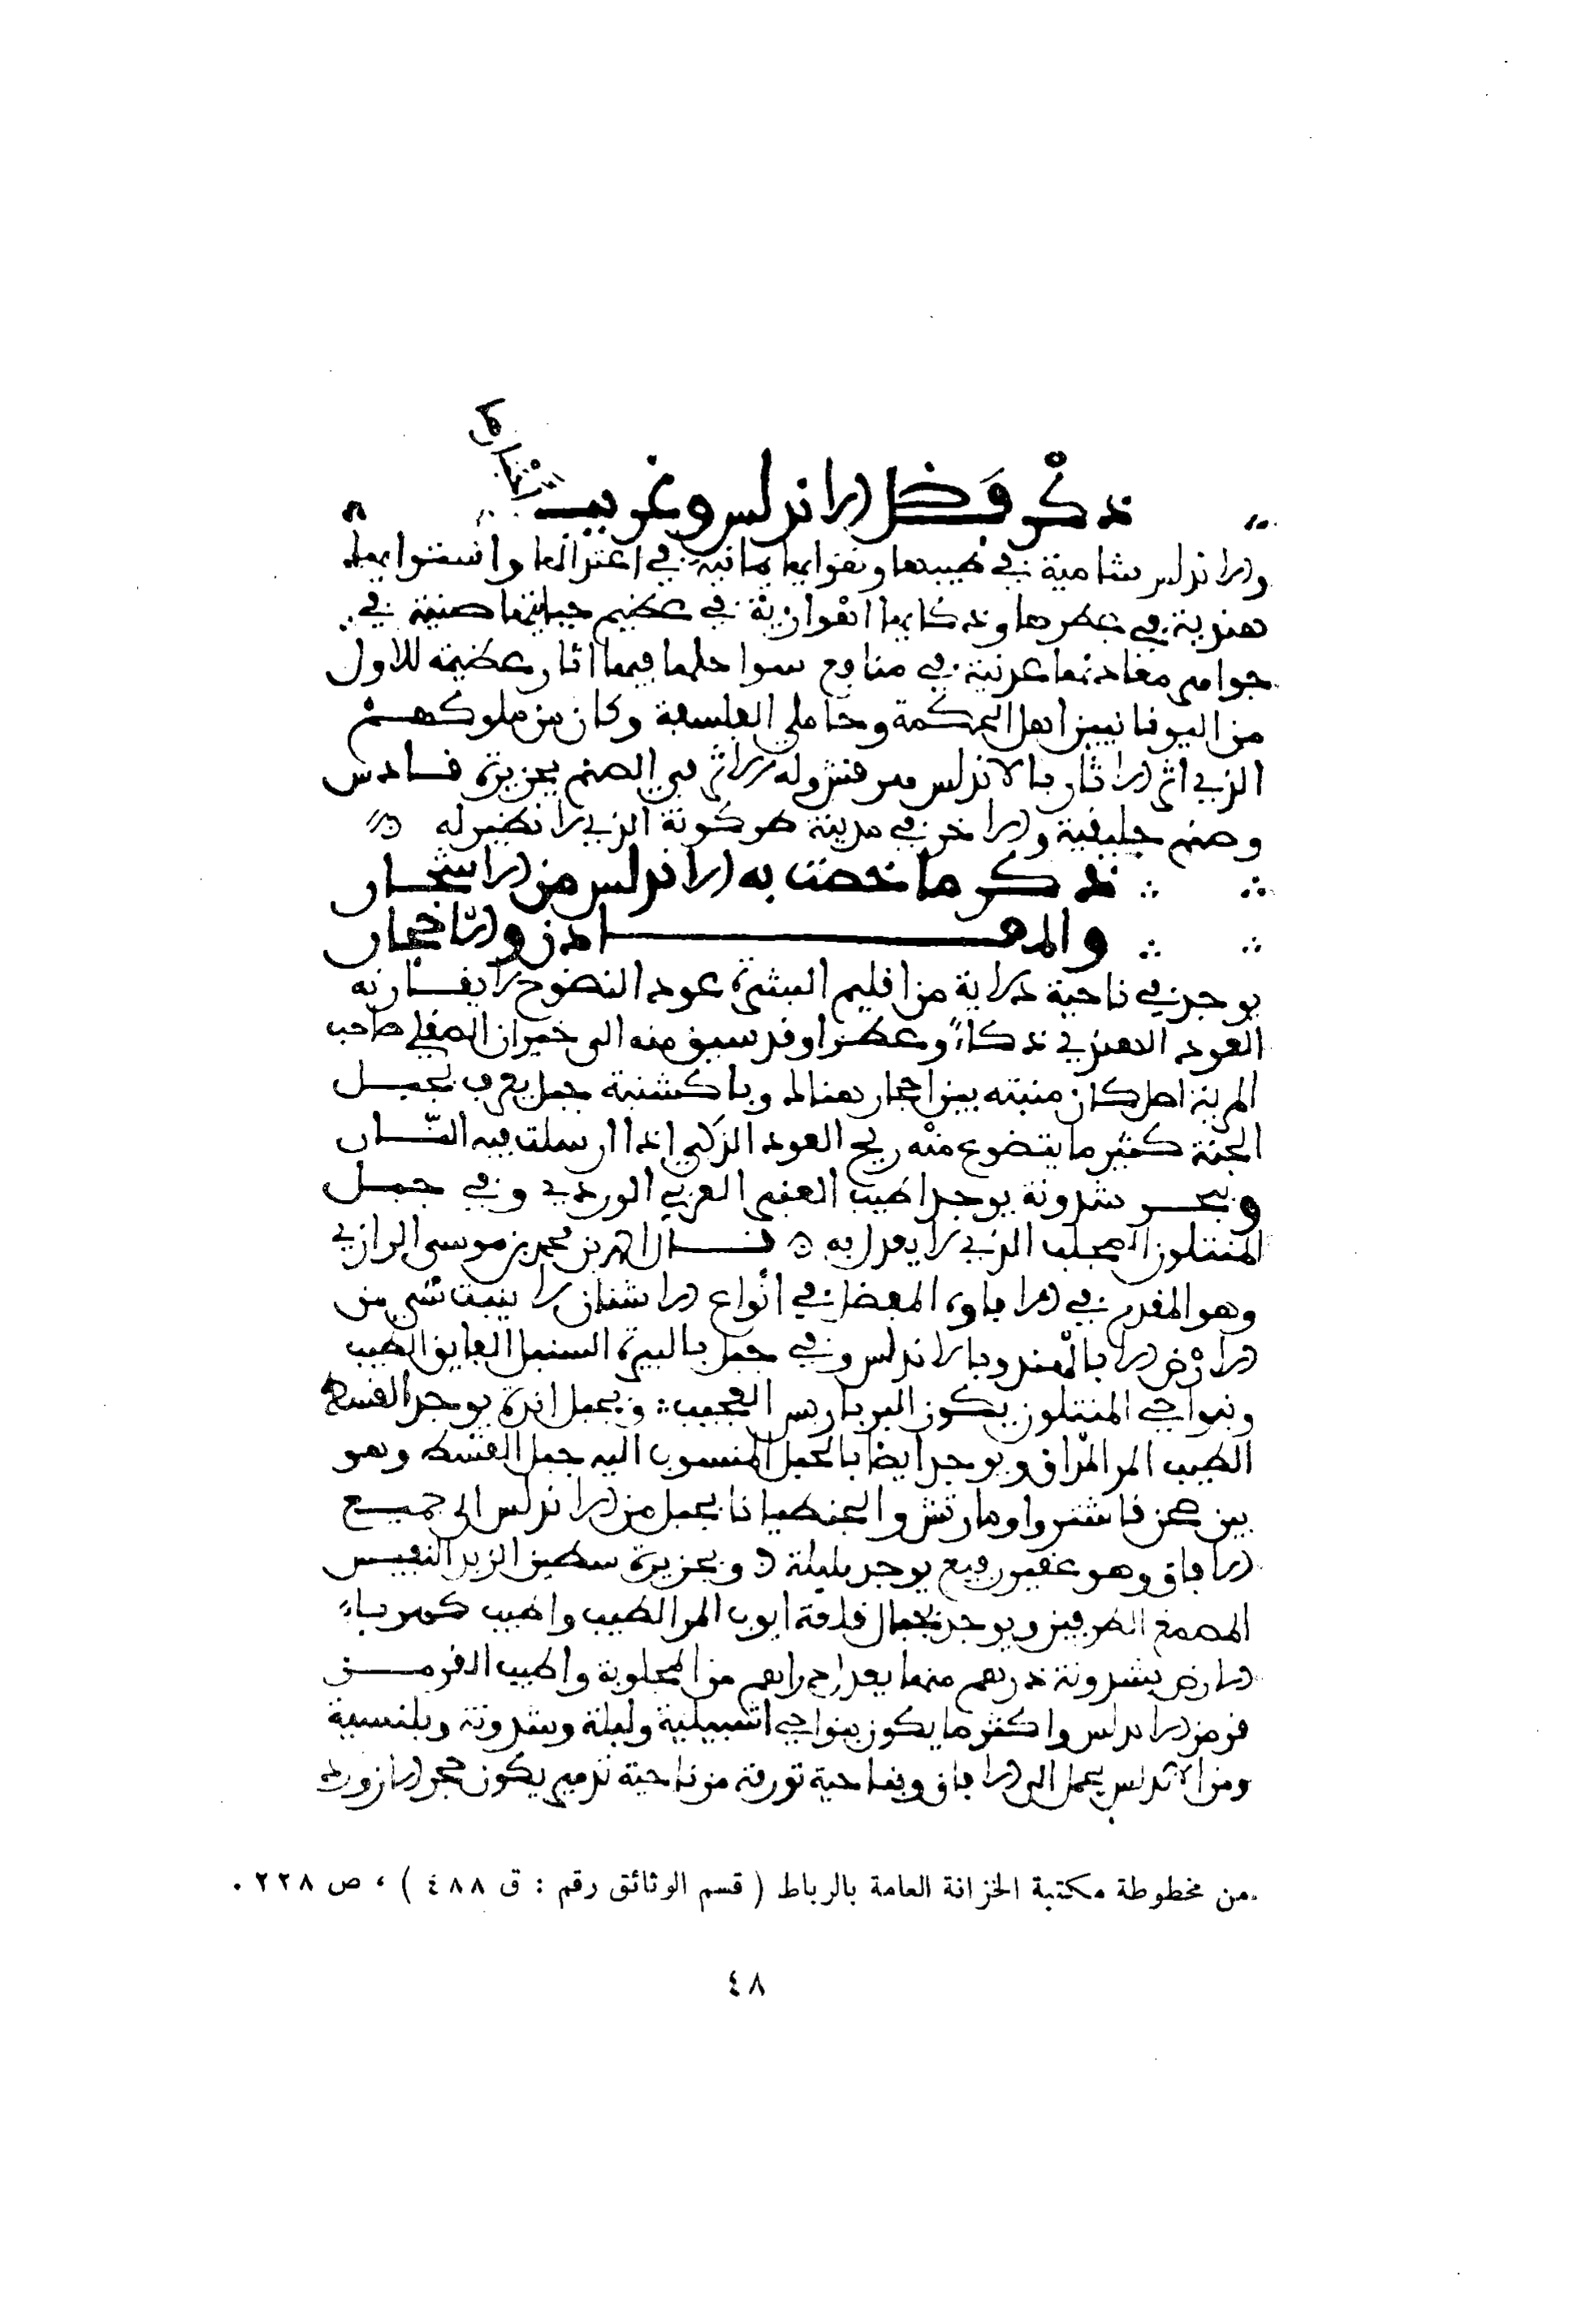 ذكر فضل الاندلس وغريب
والاندلس شامية في طيبها وهوايها يمانية في اعتدالها واستوايها
هندية في عطرها وذكايها اهوازية في عظيم جبايتها صينية في
جواهر معادنها عدنية في منافع سواحلها فيها اثار عظيمة للاول
من اليونانيين اهل الحكمة وحاملي الفلسفة وكان من ملوكهم
الذي اثر الاثار بالاندلس هرقلش وله الاثر في الصنم بجزيرة قادس
وصنم جليقية والاخر في مدينة طركونة الذي لا نظير له
ذكر ما خصت به الاندلس من الاشجار
والمعادن والاحجار
يوجد في ناحية دلاية من اقليم البشرة عود النضوح لا يفارقه
العود الهندي ذكاء وعطرا وقد سيق منه الى خيران الصقلي صاحب
المرية اصل كان منبته بين احجار هنالك وباكشنبة جبل يعرف بجبل
الجنة كثير ما يتضوع منه ريح العود الذكي اذا ارسلت فيه النار
وببحر شذونة يوجد اطيب العنبر الغربي الوردي وفي جبل
المنتلون المحلب الذي لا يعدل به قال احمد بن محمد بن موسى الرازي
وهو المقدم في الافاويه المفضل في انواع الاشنان لا ينبت شي من
الارض الا بالهند وبالاندلس وفي جبل بالبيرة السنبل الفايق الطيب
وبنواحي المنتلون يكون البربارس العجيب وبجبل اندة يوجد القسط
الطيب المر المذاق ويوجد ايضا بالجبل المنسوب اليه جبل القسط وهو
بين حصن قاشتروا ومارتش والجنطيانا يحمل من الاندلس الى جميع
الافاق وهو عقير رفيع يوجد بلبلة وبجزيرة سطيز الزبد النفيس
المصمغ الطرفين ويوجد بجبال قلعة ايوب المر الطيب واطيب كهرباء
الارض بشذونة درهم منها يعدل دراهم من المجلوبة واطيب القرمز
قرمز الاندلس واكثر ما يكون بنواحي اشبيلية ولبلة وشذونة وبلنسية
ومن الاندلس يحمل الى الافاق وبناحية لورقة من ناحية تدمير يكون حجر الازورد
من مخطوطة مكتبة الخزانة العامة بالرباط ( قسم الوثائق رقم : ق ٤٨٨ ) ، ص ٢٢٨ .
٤٨